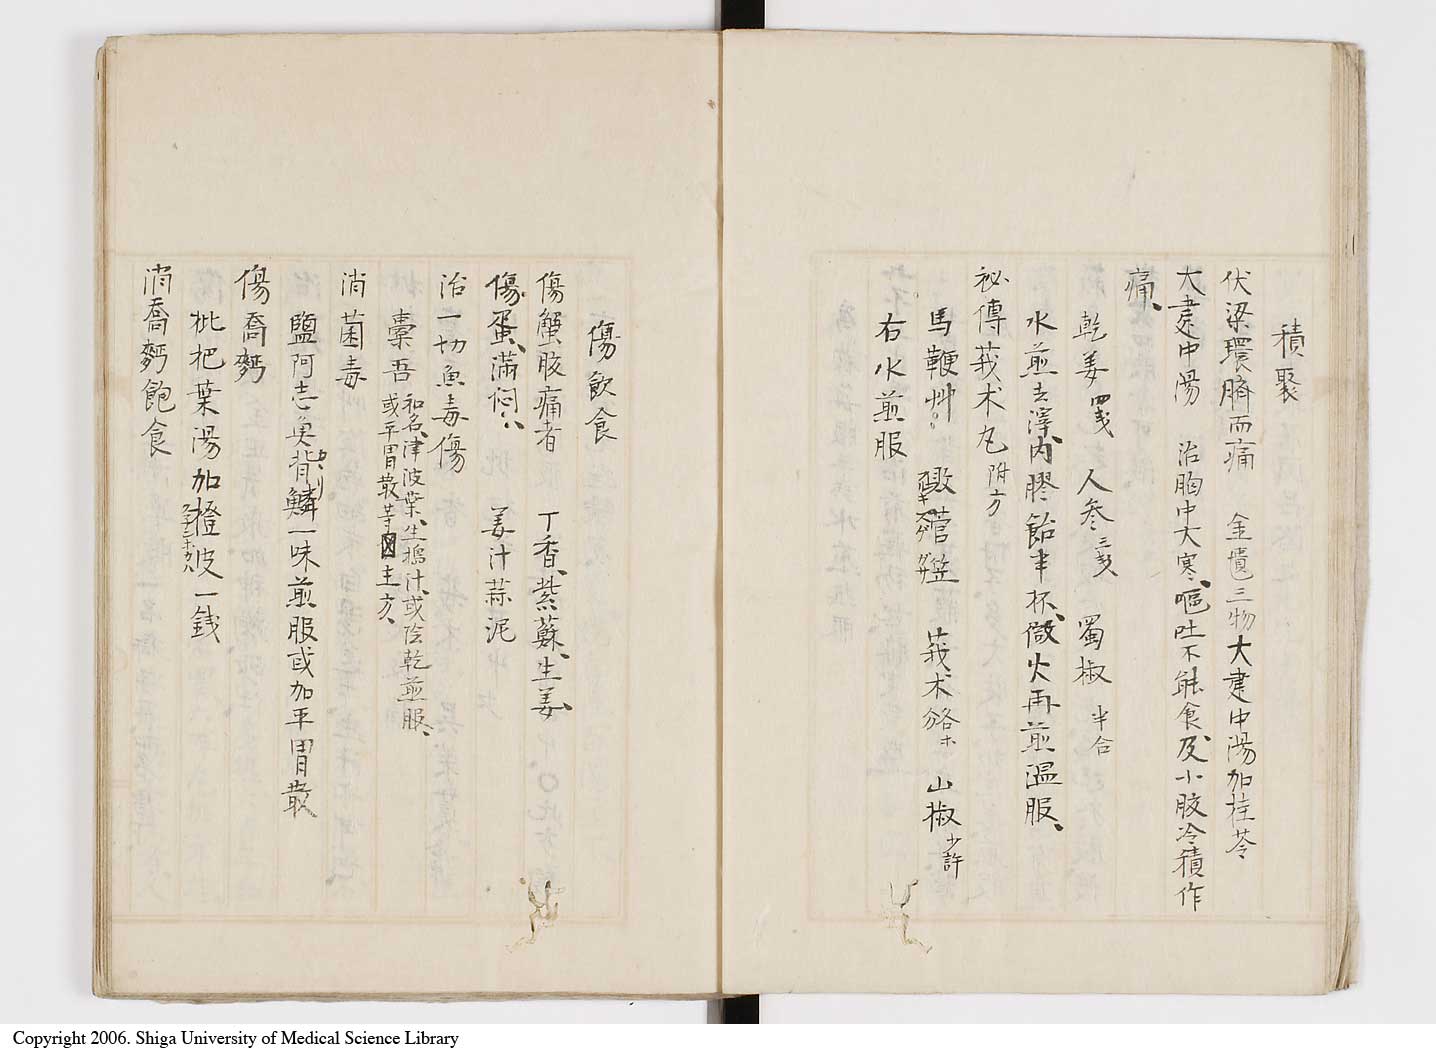 積聚
伏梁環臍而痛 金匱三物大建中湯加桂苓
大建中湯 治胸中大寒、嘔吐不能食及小腹冷積作
痛、
乾姜四戔 人参三戔 蜀椒半合
水煎去滓、内膠飴半杯、微火再煎温服、
秘傳莪术丸附方
馬鞭艸 莪术 山椒少許
右水煎服
傷飲食
傷蟹腹痛者 丁香、紫蘇、生姜、
傷蛋、滿悶、 姜汁蒜泥
治一切魚毒傷
橐吾 和名、津波葉、生搗汁、或陰乾煎服、
或平胃散等主方、
消菌毒
鹽阿志魚背鱗一味煎服或加平胃散
傷喬麪
枇杷葉湯加橙皮一銭
消喬麪飽食
Copyright 2006. Shiga University of Medical Science Library